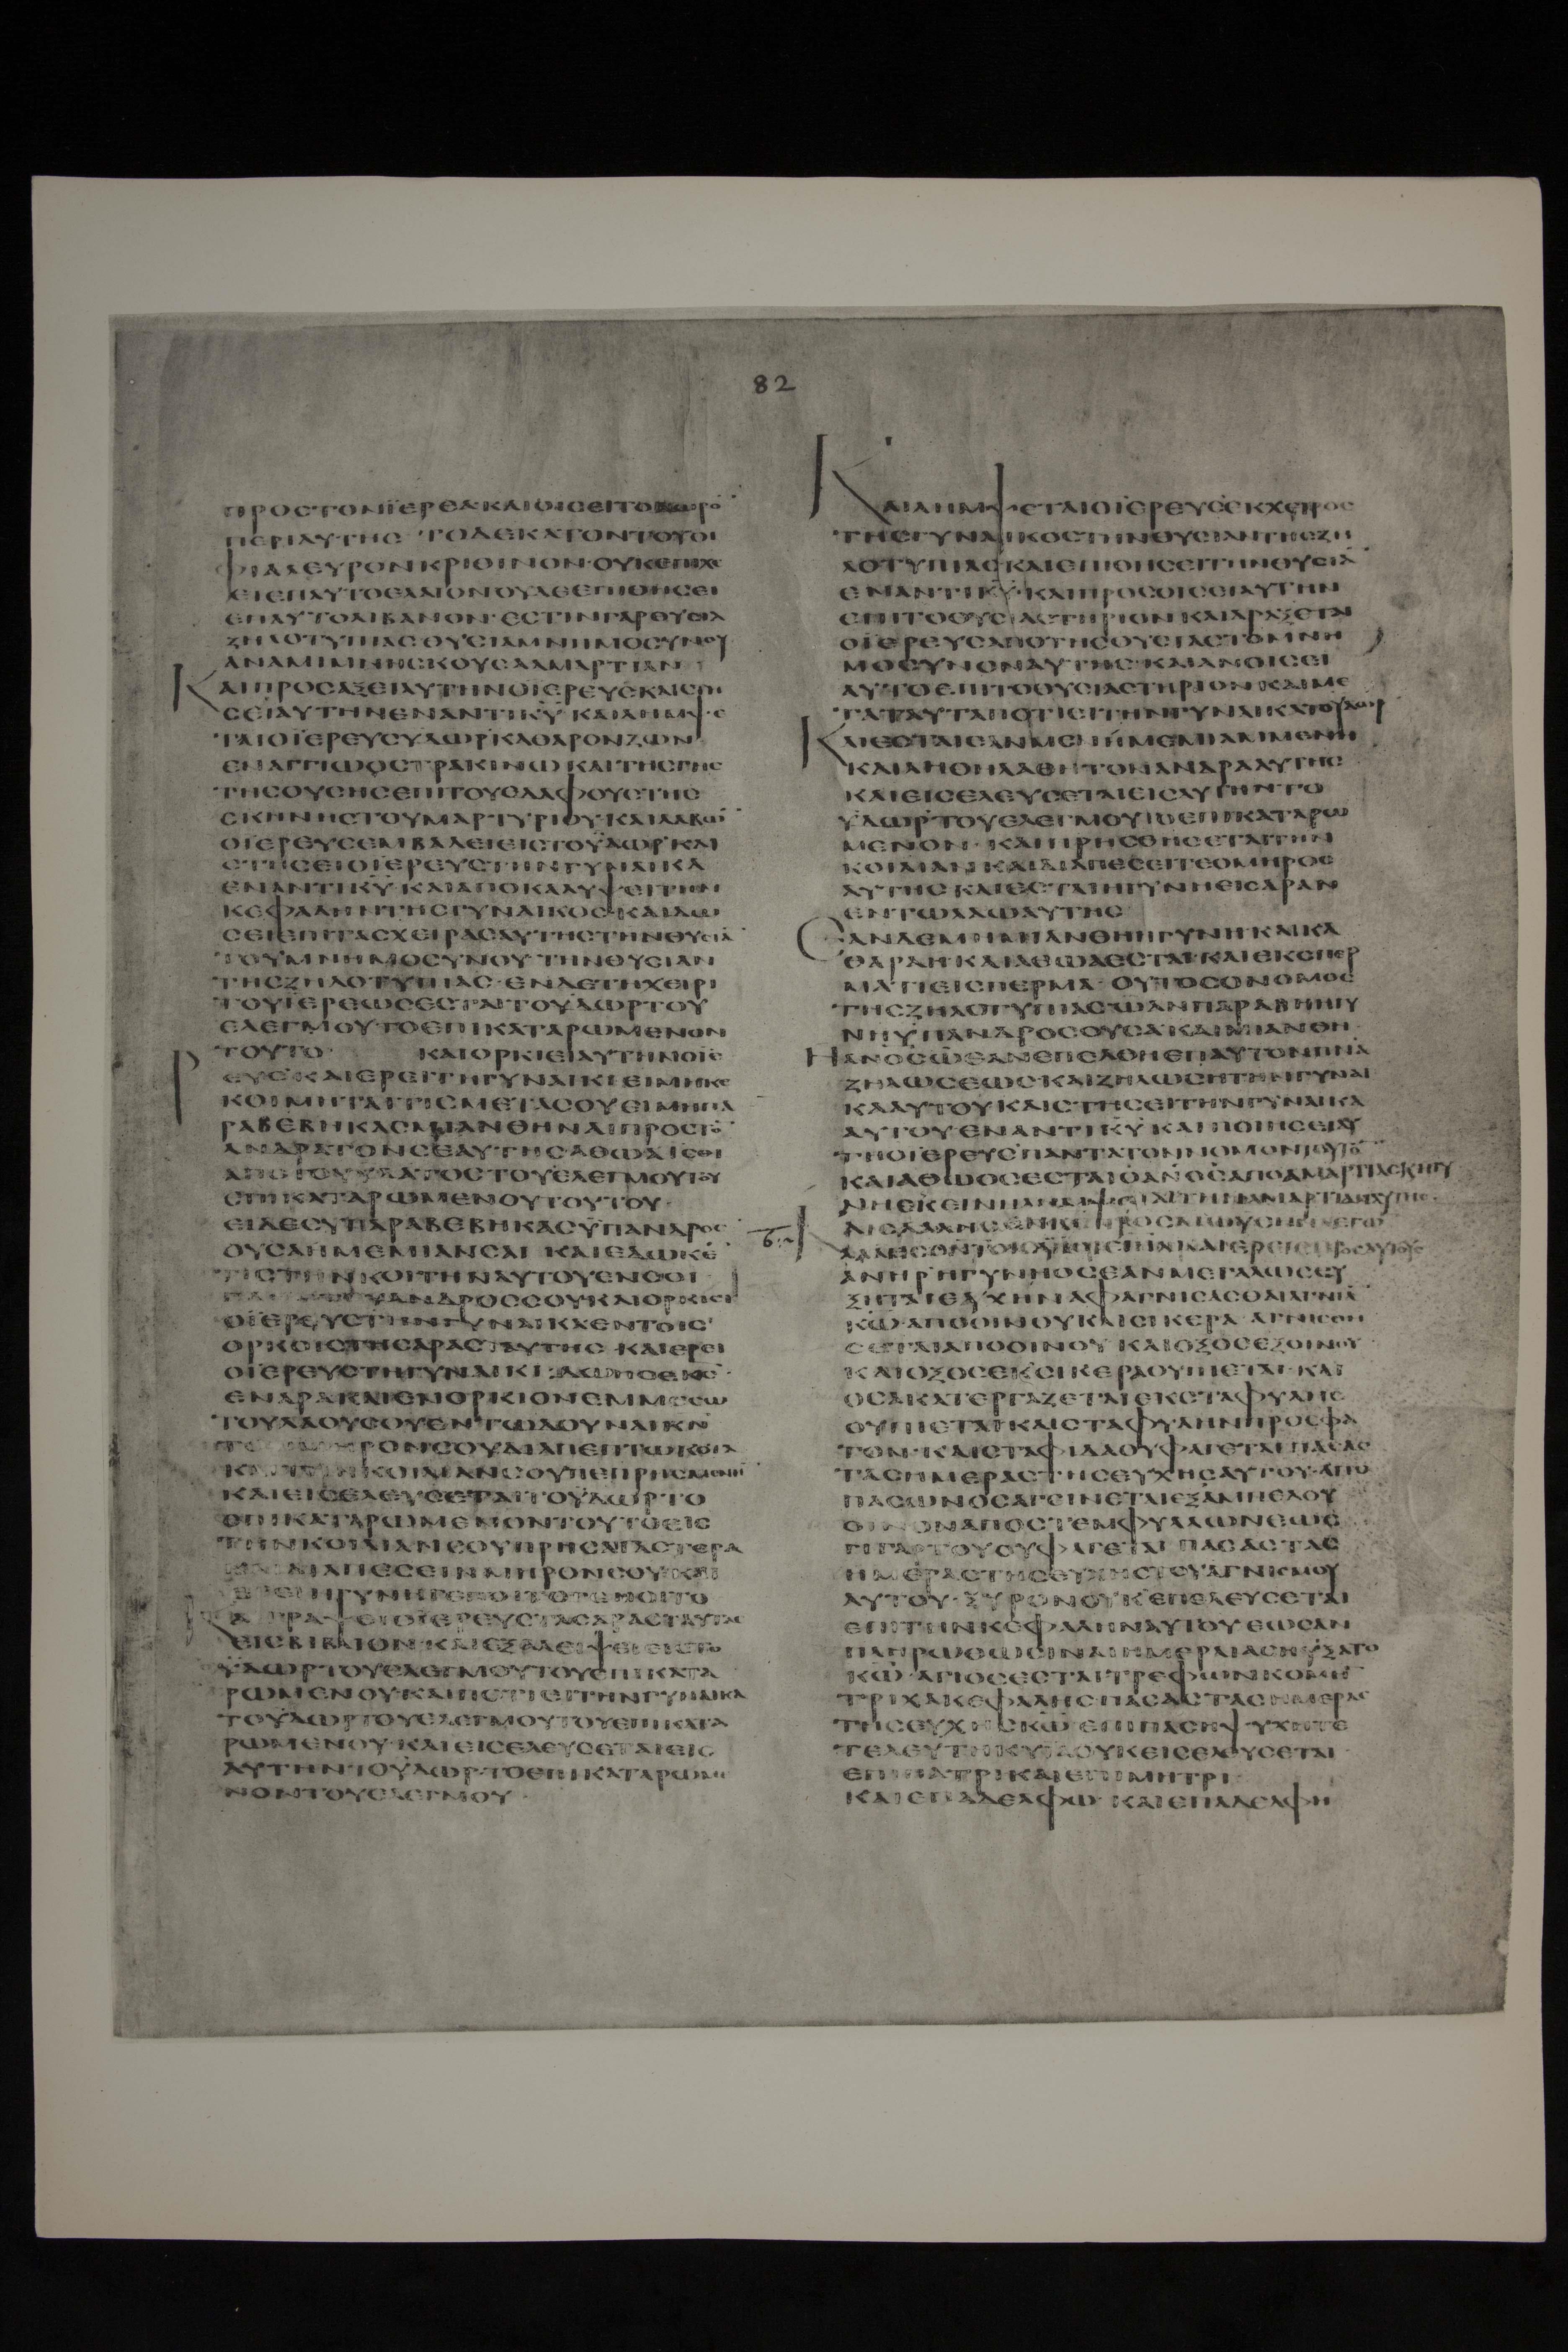 82
ΠΡΟCΤΟΝΪΕΡΕΑΚΑΙΟΙCΕΙΤΟ
ΠΕΡΙΑΥΤΗC ΤΟΔΕΚΑΤΟΝΤΟΥΟΙ
ΦΙΑΛΕΥΡΟΝΚΡΙΘΙΝΟΝ·ΟΥΚΕΠΙΧΕ
ΕΙΕΠΑΥΤΟΕΛΑΙΟΝΟΥΔΕΕΠΙΘΗCΕΙ
ΕΠΑΥΤΟΛΙΒΑΝΟΝ·ΕCΤΙΝΓΑΡΘΥCΙΑ
ΖΗΛΟΤΥΠΙΑCΘΥCΙΑΜΝΗΜΟCΥΝΟΥ
ΑΝΑΜΙΜΝΗCΚΟΥCΑΑΜΑΡΤΙΑΝ
ΚΑΙΠΡΟCΑΞΕΙΑΥΤΗΝΟΪΕΡΕΥCΚΑΙCΤΗ
CΕΙΑΥΤΗΝΕΝΑΝΤΙΚΥ ΚΑΙΛΗΜΨΕ
ΤΑΙΟΪΕΡΕΥCΥΔΩΡΚΑΘΑΡΟΝΖΩΝ
ΕΝΑΓΓΙΩΟCΤΡΑΚΙΝΩ ΚΑΙΤΗCΓΗC
ΤΗCΟΥCΗCΕΠΙΤΟΥΕΔΑΦΟΥCΤΗC
CΚΗΝΗCΤΟΥΜΑΡΤΥΡΙΟΥ·ΚΑΙΛΑΒΩ
ΟΪΕΡΕΥCΕΜΒΑΛΕΙΕΙCΤΟΫΔΩΡ ΚΑΙ
CΤΗCΕΙΟΪΕΡΕΥCΤΗΝΓΥΝΑΙΚΑ
ΕΝΑΝΤΙΚΥ ΚΑΙΑΠΟΚΑΛΥΨΕΙΤΗΝ
ΚΕΦΑΛΗΝΤΗCΓΥΝΑΙΚΟC·ΚΑΙΔΩ
CΕΙΕΠΙΤΑCΧΕΙΡΑCΑΥΤΗCΤΗΝΘΥCΙΑ
ΤΟΥΜΝΗΜΟCΥΝΟΥ ΤΗΝΘΥCΙΑΝ
ΤΗCΖΗΛΟΤΥΠΙΑC ΕΝΔΕΤΗΧΕΙΡΙ
ΤΟΥΪΕΡΕΩCΕCΤΑΙΤΟΥΔΩΡΤΟΥ
ΕΛΕΓΜΟΥΤΟΕΠΙΚΑΤΑΡΩΜΕΝΟΝ
ΤΟΥΤΟ ΚΑΙΟΡΚΙΕΙΑΥΤΗΝΟΪΕ
ΡΕΥC ΚΑΙΕΡΕΙΤΗΓΥΝΑΙΚΙΕΙΜΗΚΕ
ΚΟΙΜΗΤΑΙΤΙCΜΕΤΑCΟΥΕΙΜΗΠΑ
ΡΑΒΕΒΗΚΑCΜΙΑΝΘΗΝΑΙΠΡΟCΤΟ
ΑΝΔΡΑΤΟΝCΕΑΥΤΗCΑΘΩΑΙCΘΙ
ΑΠΟΤΟΥΥΔΑΤΟCΤΟΥΕΛΕΓΜΟΥΤΟΥ
ΕΠΙΚΑΤΑΡΩΜΕΝΟΥΤΟΥΤΟΥ
ΕΙΔΕCΥΠΑΡΑΒΕΒΗΚΑCΥΠΑΝΔΡΟC
ΟΥCΑΗΜΕΜΙΑΝCΑΙ ΚΑΙΕΔΩΚΕ
ΤΙCΤΗΝΚΟΙΤΗΝΑΥΤΟΥΕΝCΟΙ
ΑΝΔΡΟCCΟΥΚΑΙΟΡΚΙCΕΙ
ΟΪΕΡΕΥCΤΗΝΓΥΝΑΙΚΑΕΝΤΟΙC
ΟΡΚΟΙCΤΗCΑΡΑCΤΑΥΤΗC ΚΑΙΕΡΕΙ
ΟΪΕΡΕΥCΤΗΓΥΝΑΙΚΙ ΔΩΗCΕΚC
ΕΝΑΡΑΚΑΙΕΝΟΡΚΙΟΝΕΜΜΕCΩ
ΤΟΥΛΑΟΥCΟΥΕΝΤΩΔΟΥΝΑΙΚΝ
ΡΟΝCΟΥΔΙΑΠΕΠΤΩΚΟΤΑ
ΚΟΙΛΙΑΝCΟΥΠΕΠΡΗCΜΕΝΗ
ΚΑΙΕΙCΕΛΕΥCΕΤΑΙΤΟΫΔΩΡΤΟ
ΕΠΙΚΑΤΑΡΩΜΕΝΟΝΤΟΥΤΟΕΙC
ΤΗΝΚΟΙΛΙΑΝCΟΥΠΡΗCΑΙΓΑCΤΕΡΑ
ΔΙΑΠΕCΕΙΝΜΗΡΟΝCΟΥΚΑΙ
ΗΓΥΝΗΓΕΝΟΙΤΟΓΕΝΟΙΤΟ
ΓΡΑΨΕΙΟΪΕΡΕΥCΤΑCΑΡΑCΤΑΥΤΑC
ΕΙCΒΙΒΛΙΟΝ·ΚΑΙΕΞΑΛΕΙΨΕΙΕΙCΤΟ
ΫΔΩΡΤΟΥΕΛΕΓΜΟΥΤΟΥΕΠΙΚΑΤΑ
ΡΩΜΕΝΟΥ·ΚΑΙΠΟΤΙΕΙΤΗΝΓΥΝΑΙΚΑ
ΤΟΫΔΩΡΤΟΥΕΛΕΓΜΟΥΤΟΥΕΠΙΚΑΤΑ
ΡΩΜΕΝΟΥ·ΚΑΙΕΙCΕΛΕΥCΕΤΑΙΕΙC
ΑΥΤΗΝΤΟΫΔΩΡΤΟΕΠΙΚΑΤΑΡΩΜΕ
ΝΟΝΤΟΥΕΛΕΓΜΟΥ
ΚΑΙΛΗΜΨΕΤΑΙΟΪΕΡΕΥCΕΚΧΕΙΡΟC
ΤΗCΓΥΝΑΙΚΟCΤΗΝΘΥCΙΑΝΤΗCΖΗ
ΛΟΤΥΠΙΑC·ΚΑΙΕΠΙΘΗCΕΙΤΗΝΘΥCΙΑ
ΕΝΑΝΤΙΚΥ·ΚΑΙΠΡΟCΟΙCΕΙΑΥΤΗΝ
ΕΠΙΤΟΘΥCΙΑCΤΗΡΙΟΝ ΚΑΙΔΡΑΞΕΤΑΙ
ΟΪΕΡΕΥCΑΠΟΤΗCΘΥCΙΑCΤΟΜΝΗ
ΜΟCΥΝΟΝΑΥΤΗC·ΚΑΙΑΝΟΙCΕΙ
ΑΥΤΟΕΠΙΤΟΘΥCΙΑCΤΗΡΙΟΝ ΚΑΙΜΕ
ΤΑΤΑΥΤΑΠΟΤΙΕΙΤΗΝΓΥΝΑΙΚΑΤΟΫΔΩΡ
ΚΑΙΕCΤΑΙΕΑΝΜΕΝΗΜΕΜΙΑΜΜΕΝΗ
ΚΑΙΛΗΘΗΛΑΘΗΤΟΝΑΝΔΡΑΑΥΤΗC
ΚΑΙΕΙCΕΛΕΥCΕΤΑΙΕΙCΑΥΤΗΝΤΟ
ΫΔΩΡΤΟΥΕΛΕΓΜΟΥΤΟΕΠΙΚΑΤΑΡΩ
ΜΕΝΟΝ·ΚΑΙΠΡΗCΘΗCΕΤΑΙΤΗΝ
ΚΟΙΛΙΑΝ·ΚΑΙΔΙΑΠΕCΕΙΤΕΟΜΗΡΟC
ΑΥΤΗC ΚΑΙΕCΤΑΙΗΓΥΝΗΕΙCΑΡΑΝ
ΕΝΤΩΛΑΩΑΥΤΗC
ΕΑΝΔΕΜΗΜΙΑΝΘΗΗΓΥΝΗΚΑΙΚΑ
ΘΑΡΑΗ·ΚΑΙΑΘΩΑΕCΤΑΙ·ΚΑΙΕΚCΠΕΡ
ΜΑΤΙΕΙCΠΕΡΜΑ·ΟΥΤΟCΟΝΟΜΟC
ΤΗCΖΗΛΟΤΥΠΙΑCΩΑΝΠΑΡΑΒΗΗΓΥ
ΝΗΫΠΑΝΔΡΟCΟΥCΑ·ΚΑΙΜΙΑΝΘΗ
ΗΑΝΟCΩΕΑΝΕΠΕΛΘΗΕΠΑΥΤΟΝΠΝΑ
ΖΗΛΩCΕΩC·ΚΑΙΖΗΛΩCΗΤΗΝΓΥΝΑΙ
ΚΑΑΥΤΟΥΚΑΙCΤΗCΕΙΤΗΝΓΥΝΑΙΚΑ
ΑΥΤΟΥΕΝΑΝΤΙΚΥ ΚΑΙΠΟΙΗCΕΙΑΥ
ΤΗΟΪΕΡΕΥCΠΑΝΤΑΤΟΝΝΟΜΟΝΤΟΥΤΟ
ΚΑΙΑΘΩΟCΕCΤΑΙΟΑΝΟCΑΠΟΑΜΑΡΤΙΑCΚΗΓΥ
ΝΗΕΚΕΙΝΗ
ΑΛΗCΟΝΤΟΙCΫΙΟΙCΙΗΛΚΑΙΕΡΕΙC
ΑΝΗΡΗΓΥΝΗΟCΕΑΝΜΕΓΑΛΩCΕΥ
ΞΗΤΑΙΕΥΧΗΝΑΦΑΓΝΙCΑCΘΑΙΑΓΝΙΑ
ΚΩ·ΑΠΟΟΙΝΟΥΚΑΙCΙΚΕΡΑ ΑΓΝΙCΘΗ
CΕΤΑΙΑΠΟΟΙΝΟΥ ΚΑΙΟΞΟCΕΞΟΙΝΟΥ
ΚΑΙΟΞΟCΕΚCΙΚΕΡΑΟΥΠΙΕΤΑΙ·ΚΑΙ
ΟCΑΚΑΤΕΡΓΑΖΕΤΑΙΕΚCΤΑΦΥΛΗC
ΟΥΠΙΕΤΑΙ·ΚΑΙCΤΑΦΥΛΗΝΠΡΟCΦΑ
ΤΟΝ·ΚΑΙCΤΑΦΙΔΑΟΥΦΑΓΕΤΑΙΠΑCΑC
ΤΑCΗΜΕΡΑCΤΗCΕΥΧΗCΑΥΤΟΥ·ΑΠΟ
ΠΑCΩΝΟCΑΓΕΙΝΕΤΑΙΕΞΑΜΠΕΛΟΥ
ΟΙΝΟΝΑΠΟCΤΕΜΦΥΛΩΝΕΩC
ΓΙΓΑΡΤΟΥΟΥΦΑΓΕΤΑΙ ΠΑCΑCΤΑC
ΗΜΕΡΑCΤΗCΕΥΧΗCΤΟΥΑΓΝΙCΜΟΥ
ΑΥΤΟΥ·ΞΥΡΟΝΟΥΚΕΠΕΛΕΥCΕΤΑΙ
ΕΠΙΤΗΝΚΕΦΑΛΗΝΑΥΤΟΥ ΕΩCΑΝ
ΠΛΗΡΩΘΩCΙΝΑΙΗΜΕΡΑΙΑCΗΥΞΑΤΟ
ΚΩ·ΑΓΙΟCΕCΤΑΙΤΡΕΦΩΝΚΟΜΗ
ΤΡΙΧΑΚΕΦΑΛΗCΠΑCΑCΤΑCΗΜΕΡΑC
ΤΗCΕΥΧΗCΚΩ ΕΠΙΠΑCΗΨΥΧΗΤΕ
ΤΕΛΕΥΤΗΚΥΙΑΟΥΚΕΙCΕΛΕΥCΕΤΑΙ
ΕΠΙΠΑΤΡΙΚΑΙΕΠΙΜΗΤΡΙ
ΚΑΙΕΠΑΔΕΛΦΩ ΚΑΙΕΠΑΔΕΛΦΗ